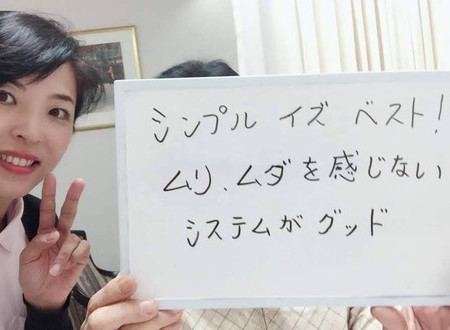 シンプル イズ ベスト!
ムリ、ムダを感じない
システムが グッド